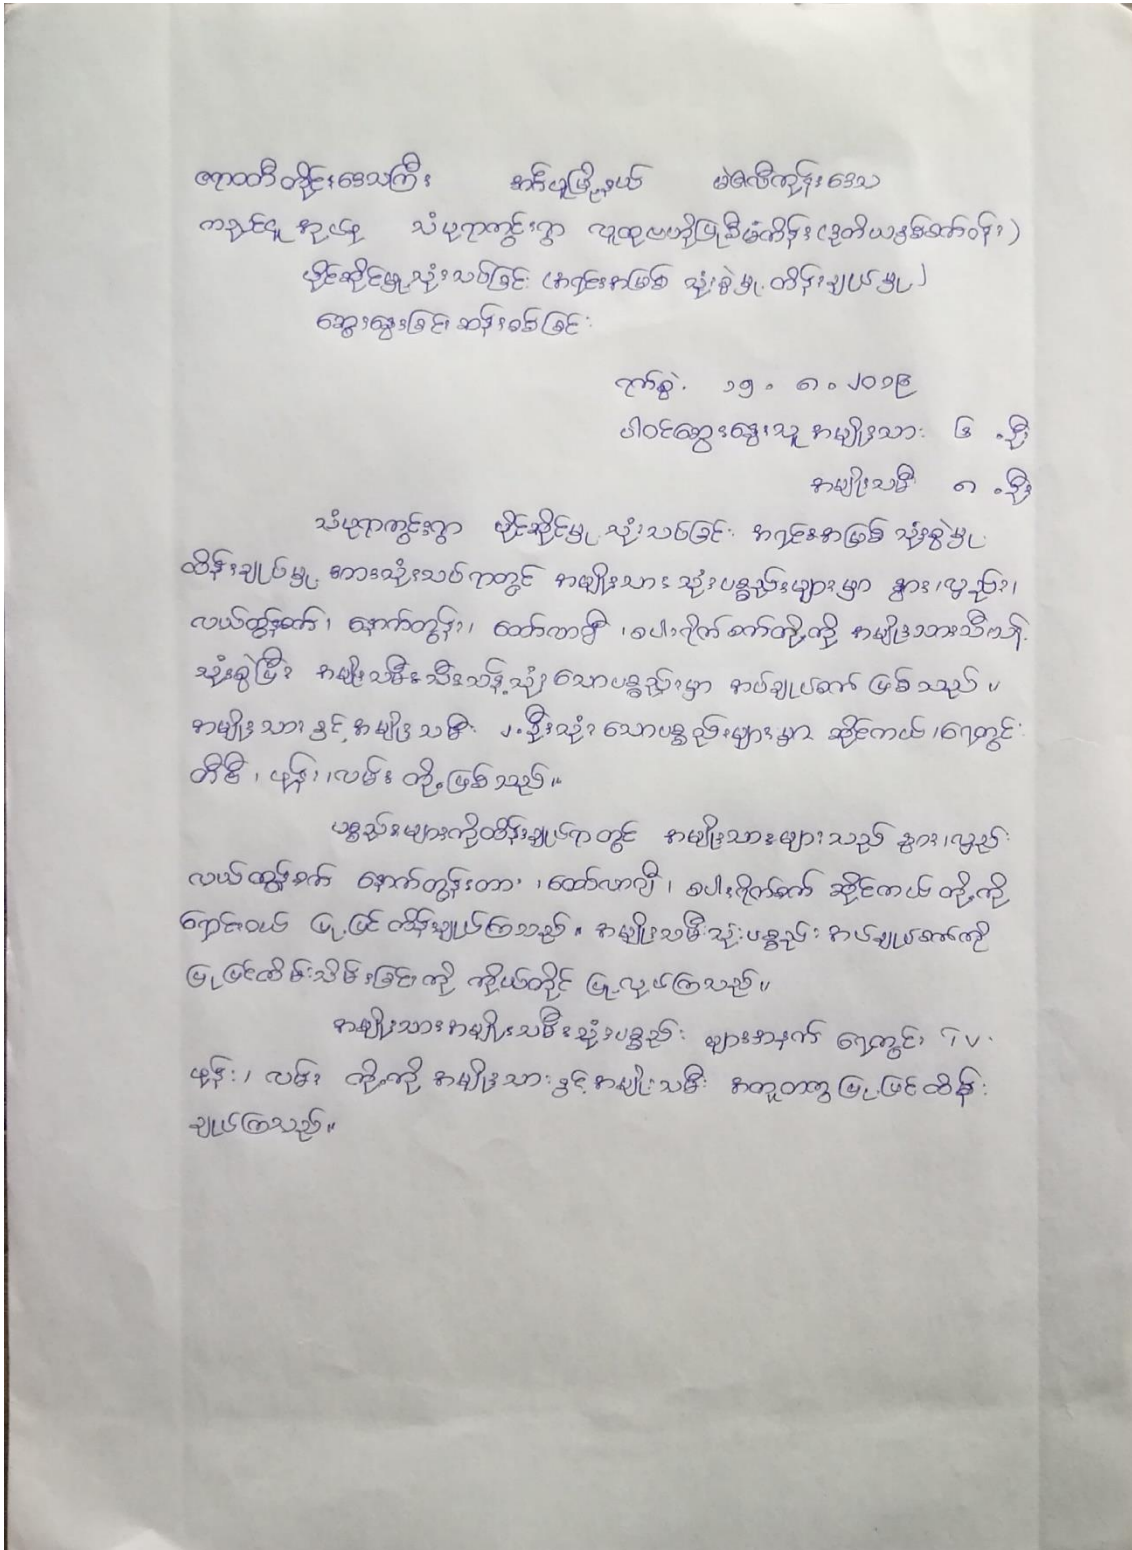 ဧရာဝတီတိုင်းဒေသကြီး အင်္ဂပူမြို့နယ် မဲဇလီကုန်းဒေသ
ကချင်စု အုပ်စု သံပုရာကွင်းရွာ လူထုဗဟိုပြုစီမံကိန်း (ဒုတိယနှစ်စက်ဝန်း)
ပိုင်ဆိုင်မှု သုံးသပ်ခြင်း (အရင်းအမြစ် သုံးစွဲမှု ထိန်းချုပ်မှု)
ဆွေးနွေးခြင်း ဆန်းစစ်ခြင်း
ရက်စွဲ. ၁၅.၈.၂၀၁၉
ပါဝင်ဆွေးနွေးသူ အမျိုးသား ၆ ဦး
အမျိုးသမီး ၈ ဦး
သံပုရာကွင်းရွာ ပိုင်ဆိုင်မှု သုံးသပ်ခြင်း အရင်းအမြစ် သုံးစွဲမှု
ထိန်းချုပ်မှု အားသုံးသပ်ရာတွင် အမျိုးသား သုံးပစ္စည်းများမှာ နွား၊လှည်း၊
လယ်ထွန်စက်၊ နောက်တွန်း၊ ထော်လာဂျီ၊ စပါးရိုက်စက်တို့ကို အမျိုးသားသီးသန့်
သုံးစွဲပြီး အမျိုးသမီးသီးသန့်သုံး သောပစ္စည်းမှာ အပ်ချုပ်စက် ဖြစ်သည်။
အမျိုးသားနှင့်အမျိုးသမီး ၂.ဦးသုံး သောပစ္စည်းများမှာ ဆိုင်ကယ်၊ရေတွင်း
တီဗီ၊ ဖုန်း၊လမ်း တို့ဖြစ်သည်။
ပစ္စည်းများကိုထိန်းချုပ်ရာတွင် အမျိုးသားများသည် နွား၊လှည်း
လယ်ထွန်စက် နောက်တွန်းတာ၊ထော်လာဂျီ၊ စပါးရိုက်စက် ဆိုင်ကယ်တို့ကို
ပြုပြင်ထိန်းချုပ်ကြသည်။ အမျိုးသမီးသုံးပစ္စည်း အပ်ချုပ်စက်ကို
ပြုပြင်ထိမ်းသိမ်းခြင်းကို ကိုယ်တိုင် ပြုလုပ်ကြသည်။
အမျိုးသားအမျိုးသမီးသုံးပစ္စည်း များအနက် ရေတွင်း TV
ဖုန်း၊ လမ်း တို့ကို အမျိုးသားနှင့်အမျိုးသမီး အတူတကွ ပြုပြင်ထိန်း
ချုပ်ကြသည်။